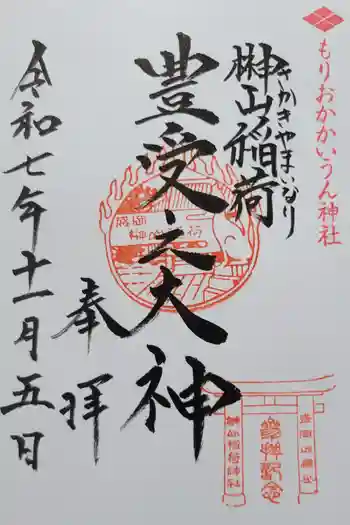 もりおかかいうん神社
榊山稲荷
さかきやまいなり
豊受之大神
奉拝
令和七年十一月五日
参拝記念
榊山稲荷神社